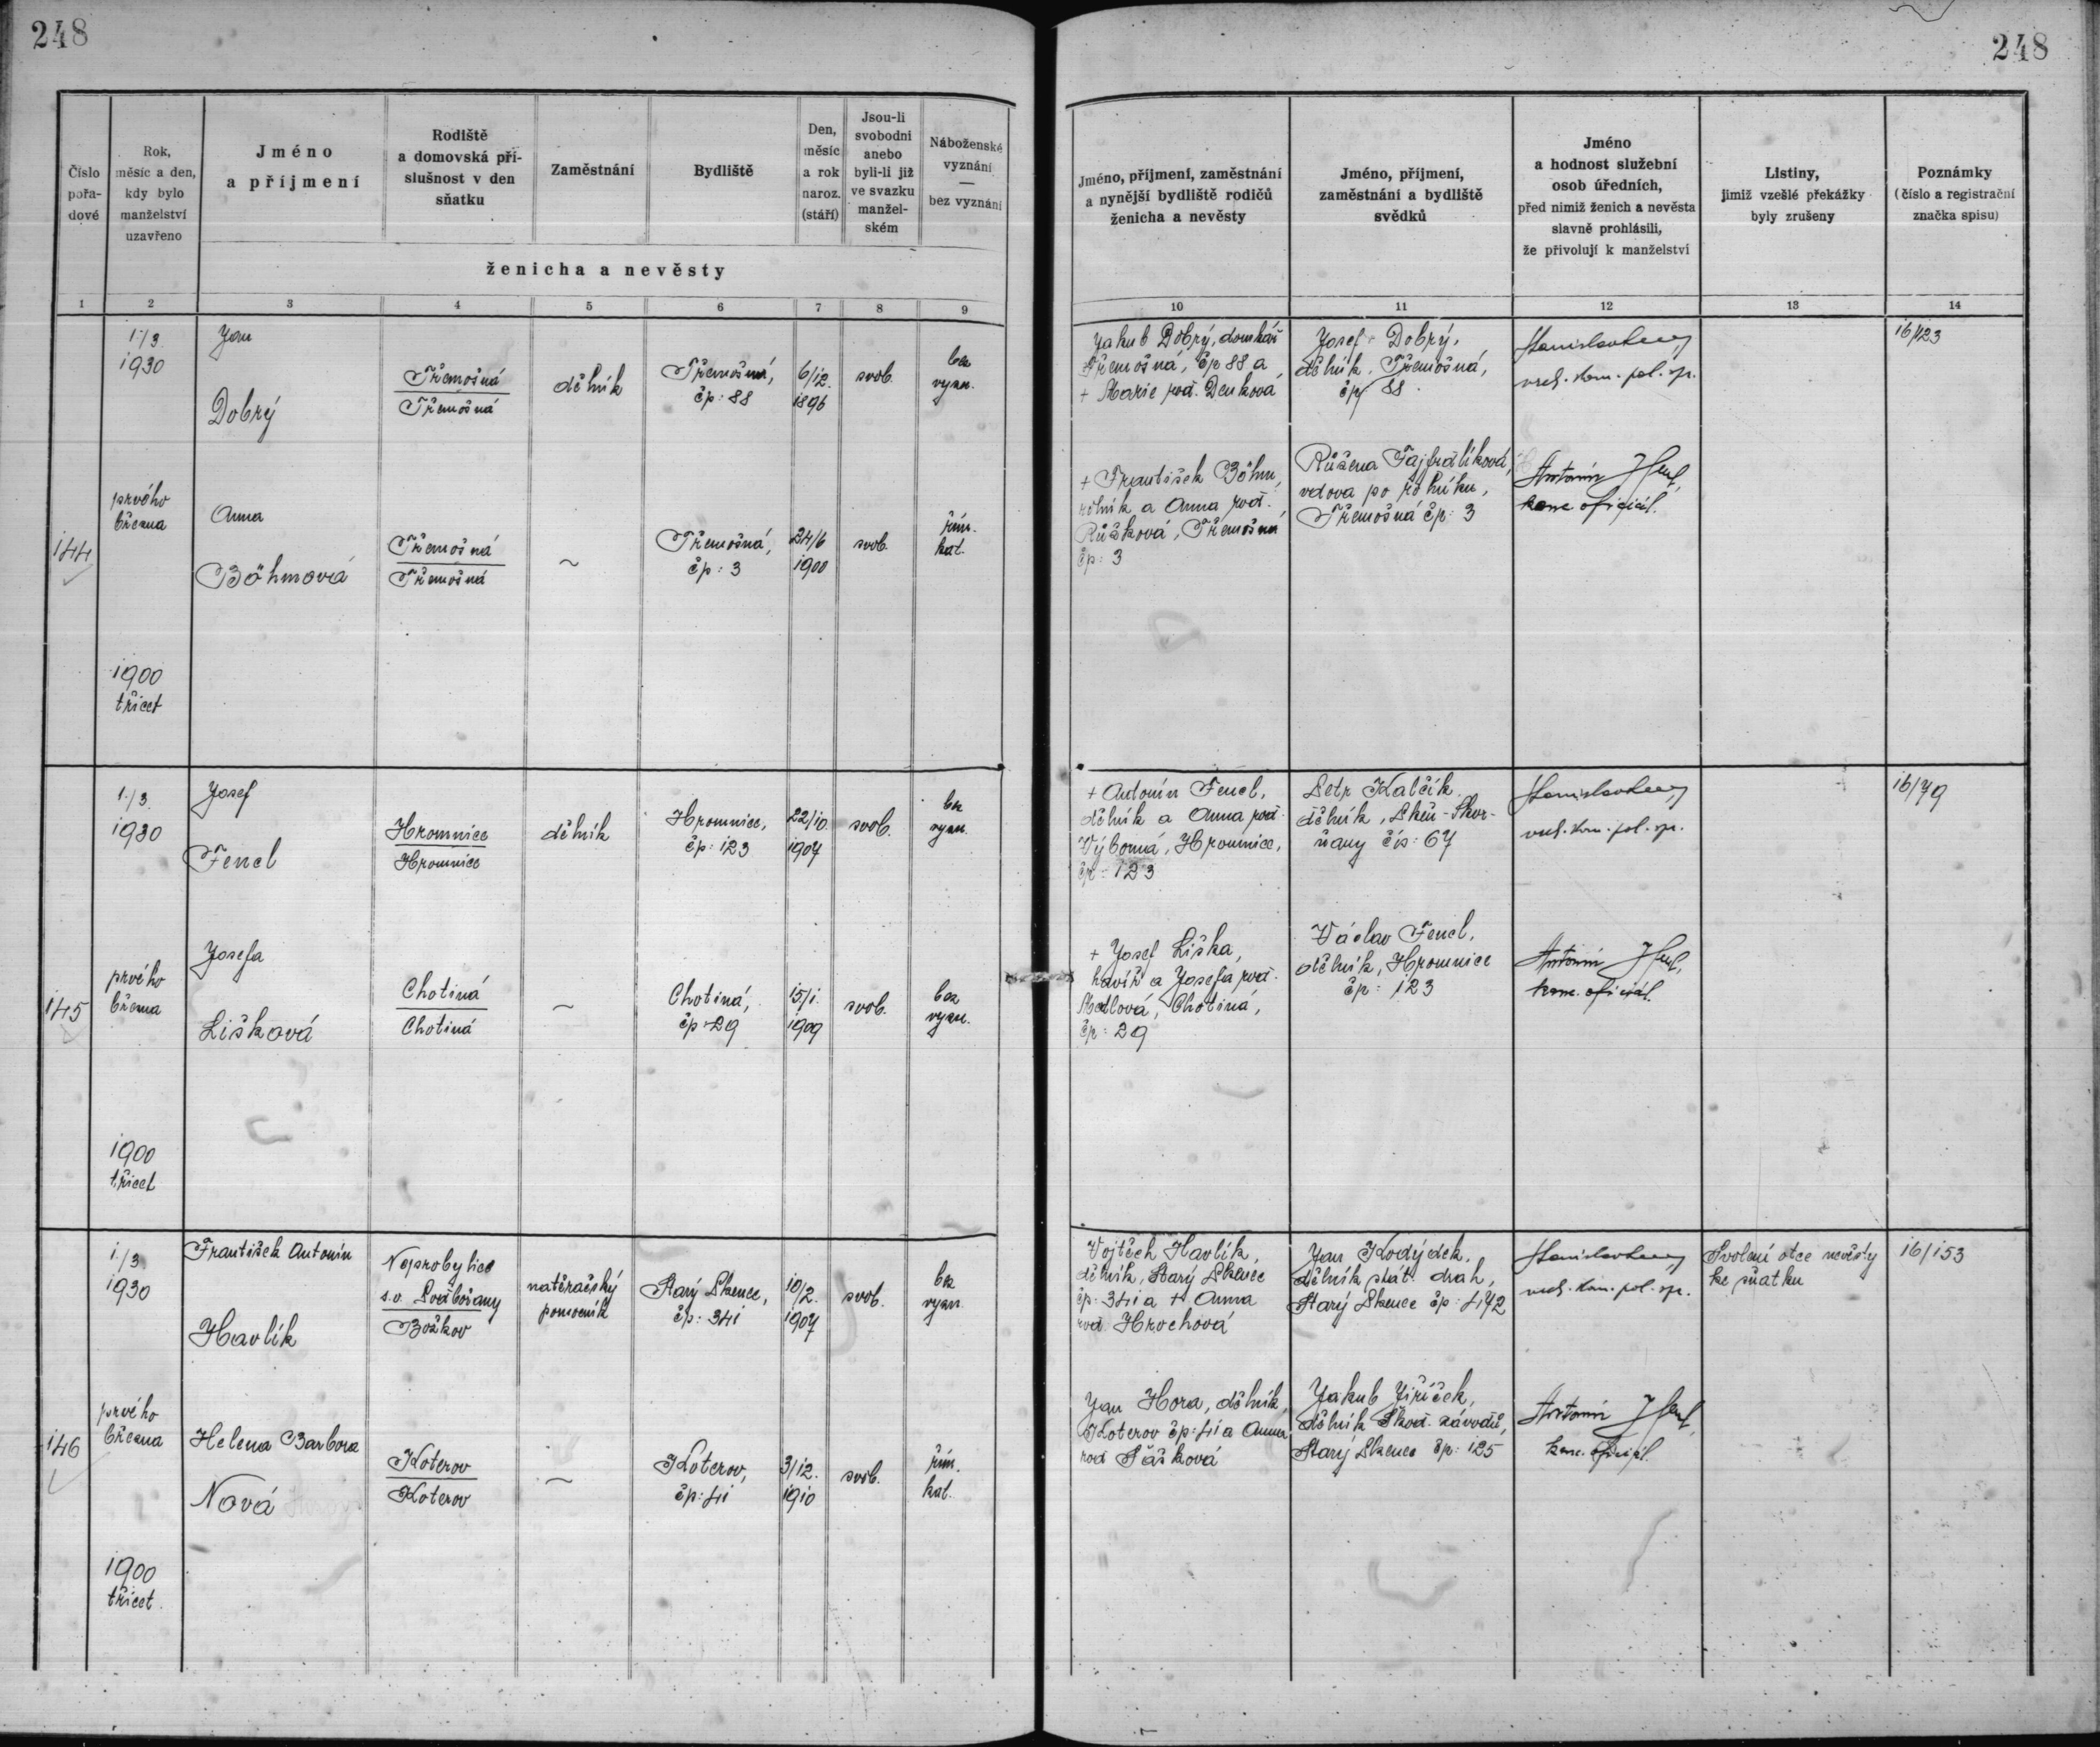 248
248
Číslo
pořa-
dové
Rok,
měsíc a den,
kdy bylo
manželství
uzavřeno
Jméno
a příjmení
Rodiště
a domovská pří-
slušnost v den
sňatku
Zaměstnání
Bydliště
Den,
měsíc
a rok
naroz.
(stáří)
Jsou-li
svobodni
anebo
byli-li již
ve svazku
manžel-
ském
Náboženské
vyznání
—
bez vyznání
ženicha a nevěsty
Jméno, příjmení, zaměstnání
a nynější bydliště rodičů
ženicha a nevěsty
Jméno, příjmení,
zaměstnání a bydliště
svědků
Jméno
a hodnost služební
osob úředních,
před nimiž ženich a nevěsta
slavně prohlásili,
že přivolují k manželství
Listiny,
jimiž vzešlé překážky
byly zrušeny
Poznámky
(číslo a registrační
značka spisu)
1 2 3 4 5 6 7 8 9 10 11 12 13 14
144
1./3.
1930
prvého
března
1900
třicet
Jan
Dobrý
Třemošná
Třemošná
dělník
Třemošná,
čp: 88
6/12.
1896
svob.
bez
vyzn.
Jakub Dobrý, domkář
Třemošná, čp 88 a
+ Marie roz. Denková
Josef Dobrý,
dělník, Třemošná,
čp 88.
vrch. kom. pol. spr.
16/123
Anna
Böhmová
Třemošná
Třemošná
~
Třemošná,
čp: 3
24/6
1900
svob.
řím.
kat.
+ František Böhm,
rolník a Anna roz.
Růžková, Třemošná
čp: 3
Růžena Tajbrdlíková,
vdova po rolníku,
Třemošná čp: 3
Antonín
kanc. oficiál.
145
1./3.
1930
prvého
března
1900
třicet
Josef
Fencl
Hromnice
Hromnice
dělník
Hromnice,
čp: 123
22/10.
1907
svob.
bez
vyzn.
+ Antonín Fencl,
dělník a Anna roz.
Výborná, Hromnice,
čp: 123
Petr Kalčík
dělník, Plzeň-Skvr-
ňany čís: 67
vrch. kom. pol. spr.
16/79
Josefa
Lišková
Chotiná
Chotiná
~
Chotiná,
čp: 29
15/1.
1909
svob.
bez
vyzn.
+ Josef Liška,
havíř a Josefa roz.
Chotiná,
čp: 29
Václav Fencl,
dělník, Hromnice
čp: 123
Antonín
kanc. oficiál.
146
1./3.
1930
prvého
března
1900
třicet.
František Antonín
Havlík
Neprobylice
s.o. Podbořany
Božkov
natěračský
pomocník
Starý Plzenec,
čp: 341
10/2.
1907
svob.
bez
vyzn.
Vojtěch Havlík,
dělník, Starý Plzenec
čp: 341 a + Anna
roz. Hrochová
Jan Kodýdek,
dělník stát. drah,
Starý Plzenec čp: 472
vrch. kom. pol. spr.
Svolení otce nevěsty
ke sňatku
16/153
Helena Barbora
Nová
Koterov
Koterov
~
Koterov,
čp: 41
3/12.
1910
svob.
řím.
kat.
Jan Hora, dělník,
Koterov čp: 41 a Anna
roz Šašková
Jakub Jiříček,
dělník Škod. závodů,
Starý Plzenec čp: 125
Antonín
kanc. oficiál.